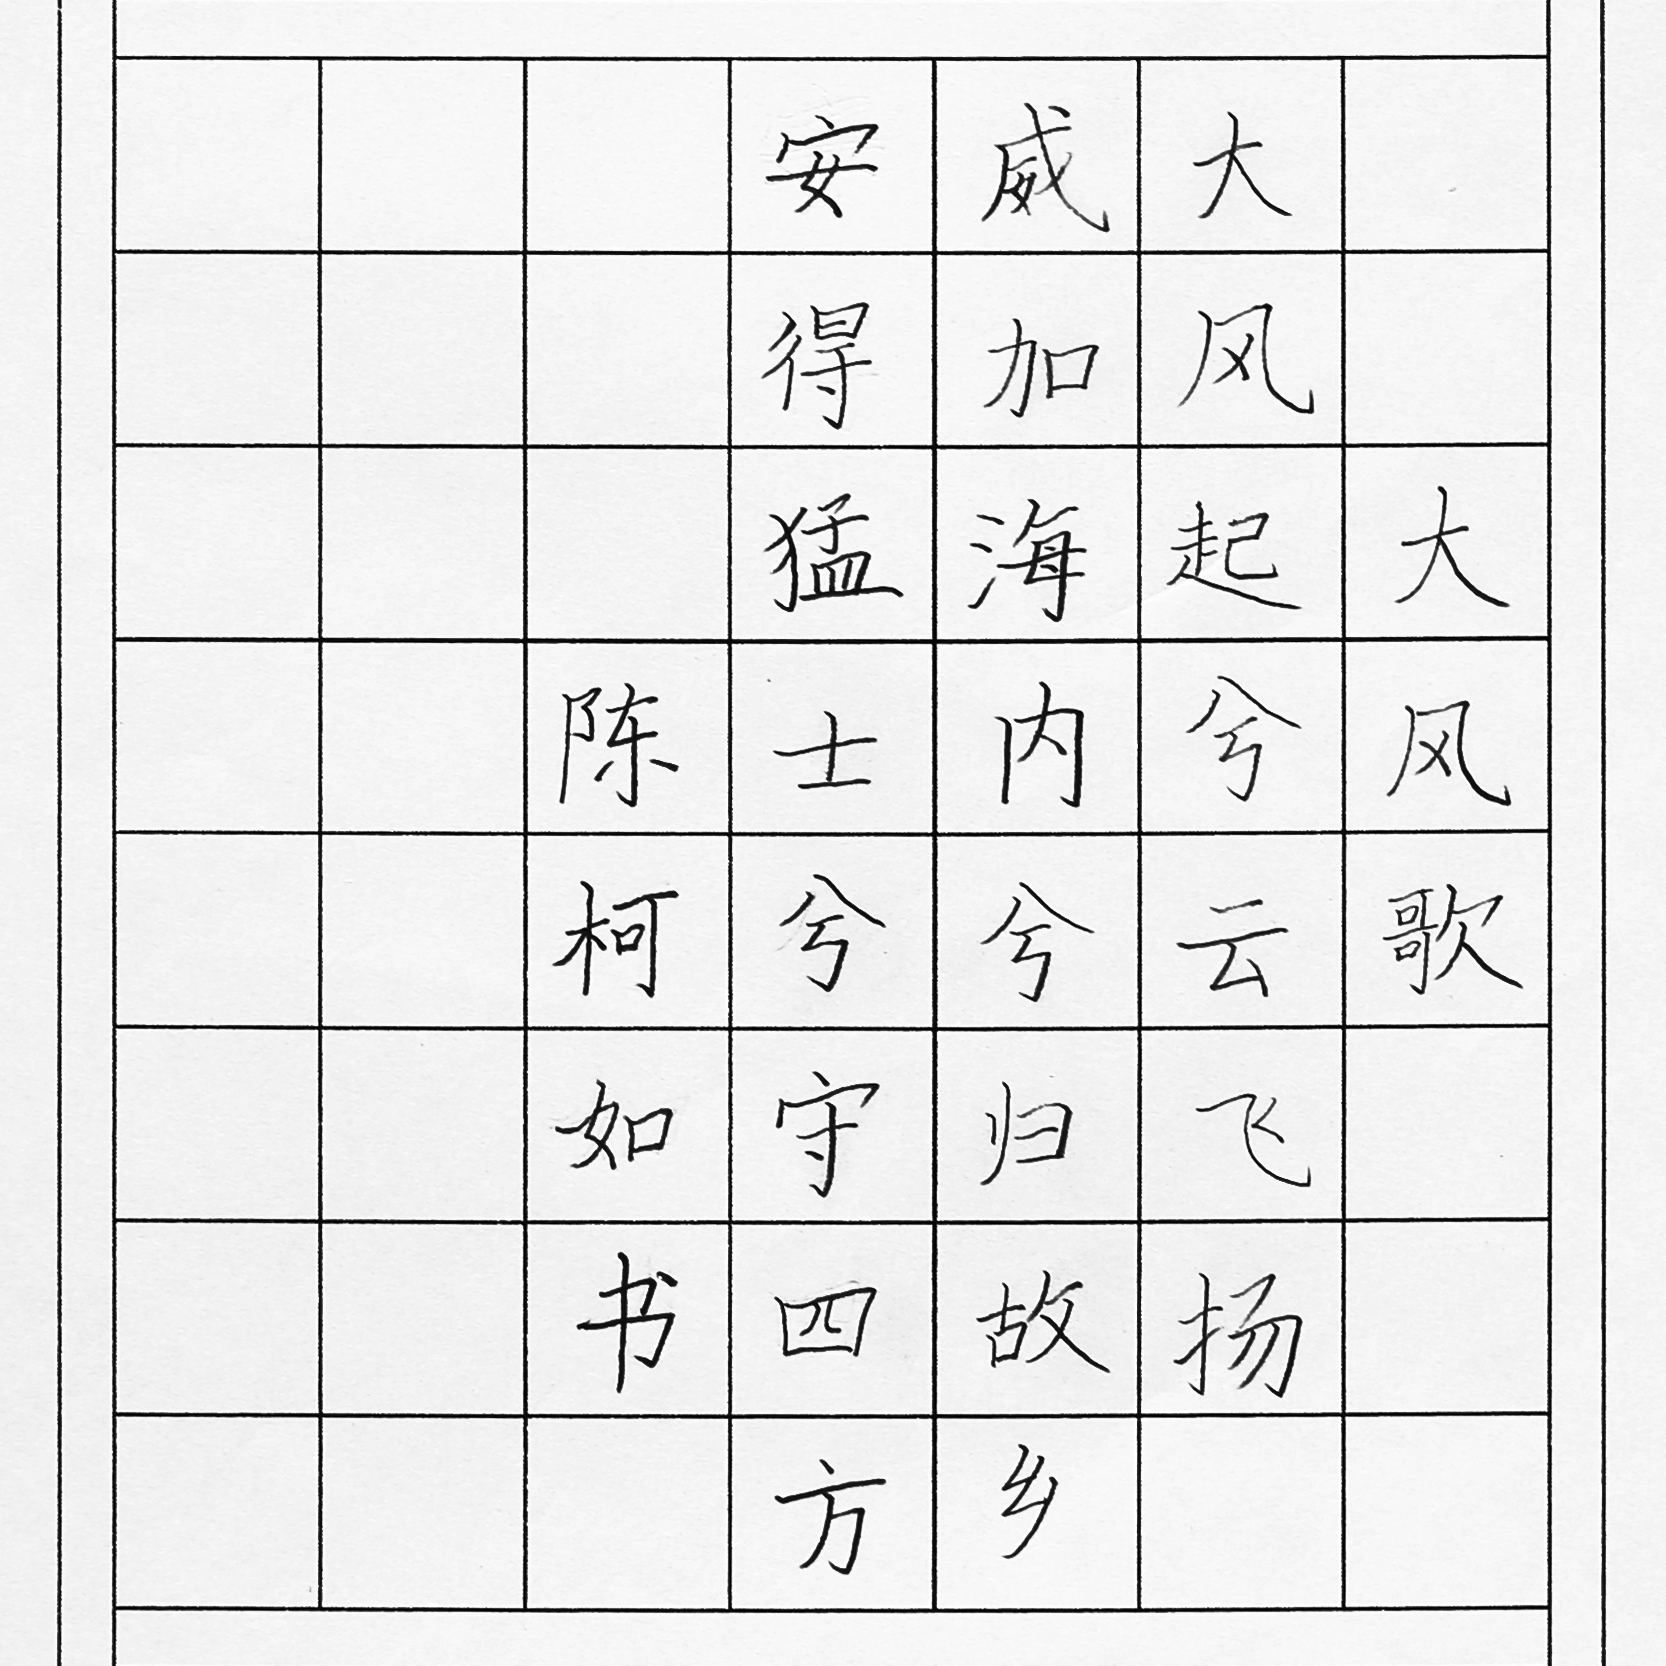 大风歌
大风起兮云飞扬
威加海内兮归故乡
安得猛士兮守四方
陈柯如书